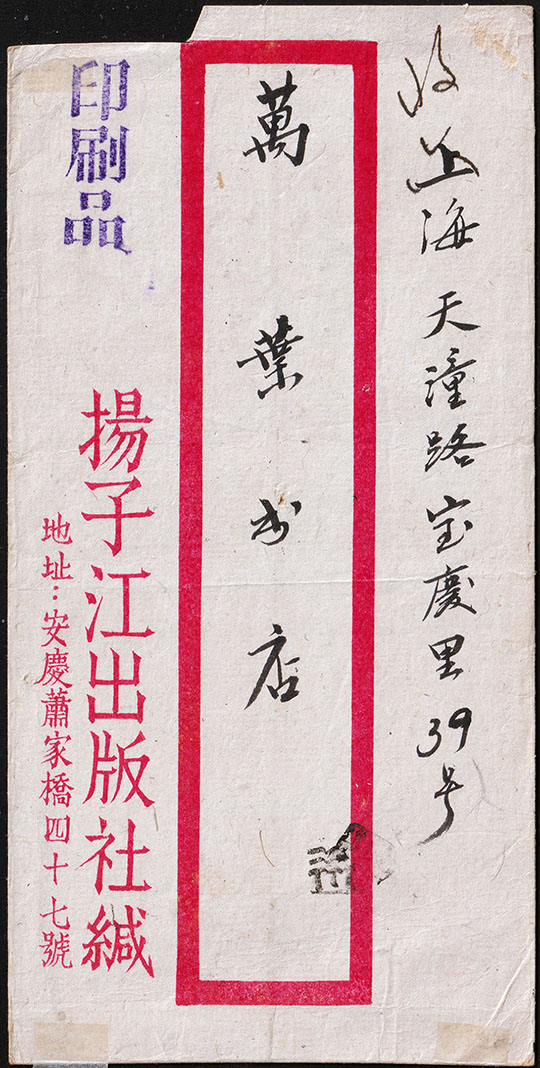 上海天潼路宝慶里39号
萬葉书店
印刷品
揚子江出版社緘
地址：安慶蕭家橋四十七號